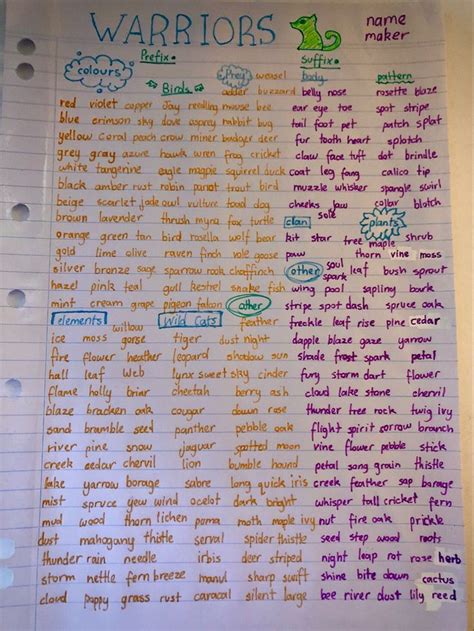 WARRIORS name
maker
Prefix Suffix
colours Birds Prey weasel body pattern
adder buzzard belly nose rosette blaze
red violet copper Jay mouse bee ear eye toe spot stripe
blue crimson sky dove osprey rabbit bug tail foot pet patch splat
yellow coral peach crow miner badger deer fur tooth heart splotch
grey gray azure hawk wren frog cricket claw face tuft dot brindle
white tangerine eagle magpie squirrel duck coat leg fang calico tip
black amber rust robin parrot trout bird muzzle whisker spangle swirl
beige scarlet jade owl vulture toad dog cheeks jaw collar blotch
brown lavender thrush myna fox turtle clan sole plants
orange green tan bird rosella wolf bear kit star tree maple shrub
gold lime olive raven finch vole goose paw thorn vine moss
silver bronze sage sparrow rook chaffinch other soul spark leaf bush sprout
hazel pink teal gull kestrel snake fish wing pool sapling bark
mint cream grape pigeon falcon other stripe spot dash spruce oak
elements willow Wild Cats feather freckle leaf rise pine cedar
ice moss gorse tiger dust night dapple blaze gaze yarrow
fire flower heather leopard shadow sun shade frost spark petal
hall leaf web lynx sweet sky cinder fury storm dart flower
flame holly briar cheetah berry ash cloud lake stone chervil
blaze bracken oak cougar dawn rose thunder tree rock twig ivy
sand bramble seed panther pebble oak flight spirit sorrow branch
river pine snow jaguar spotted moon vine flower pebble stick
creek cedar chervil lion bumble hound petal song grain thistle
lake yarrow borage sabre long quick iris creek feather sap borage
mist spruce yew wind ocelot dark bright whisper tall cricket fern
mud wood thorn lichen puma moth maple ivy nut fire oak prickle
dust mahogany thistle serval spider thistle seed step wood roots
thunder rain needle irbis deer striped night leap rot rose herb
storm nettle fern breeze manul sharp swift shine bite dawn cactus
cloud poppy grass rust caracal silent large bee river dust lily reed